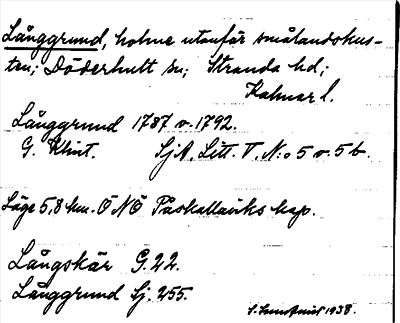 Långgrund, holme utanför smålandskus-
ten; Döderhult sn; Stranda hd;
Kalmar l.
Långgrund 1787 o. 1792.
G. Klint. SjA. Litt. V. N:o 5 o. 5 b.
Läge 5,8 km. ÖNÖ Påskallaviks kap.
Långskär G. 22.
Långgrund Sj. 255.
1938.